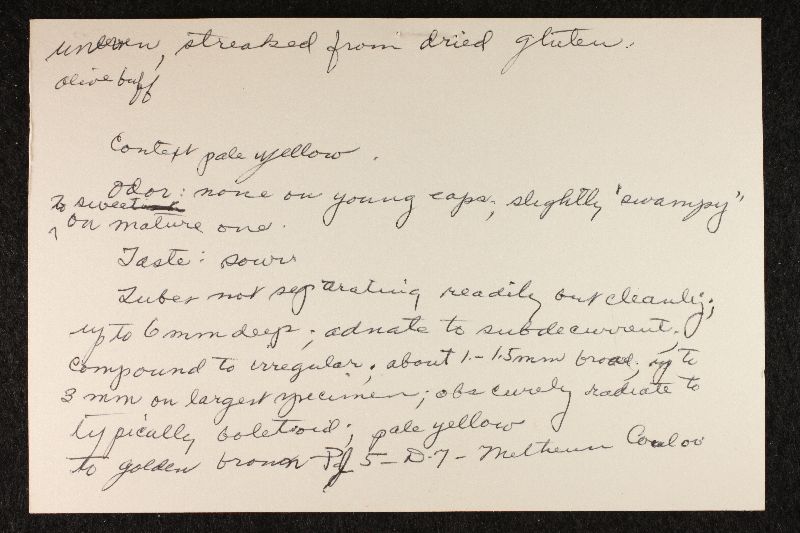 uneven, streaked from dried gluten.
olive buff
Context pale yellow.
Odor: none on young caps; slightly "swampy"
to sweet
on mature one.
Taste: sour
Tubes not separating readily but cleanly;
up to 6 mm deep; adnate to subdecurrent;
compound to irregular; about 1-1.5 mm broad; up to
3 mm on largest specimen; obscurely radiate to
typically boletoid; pale yellow
to golden brown Pl 5-D-7-